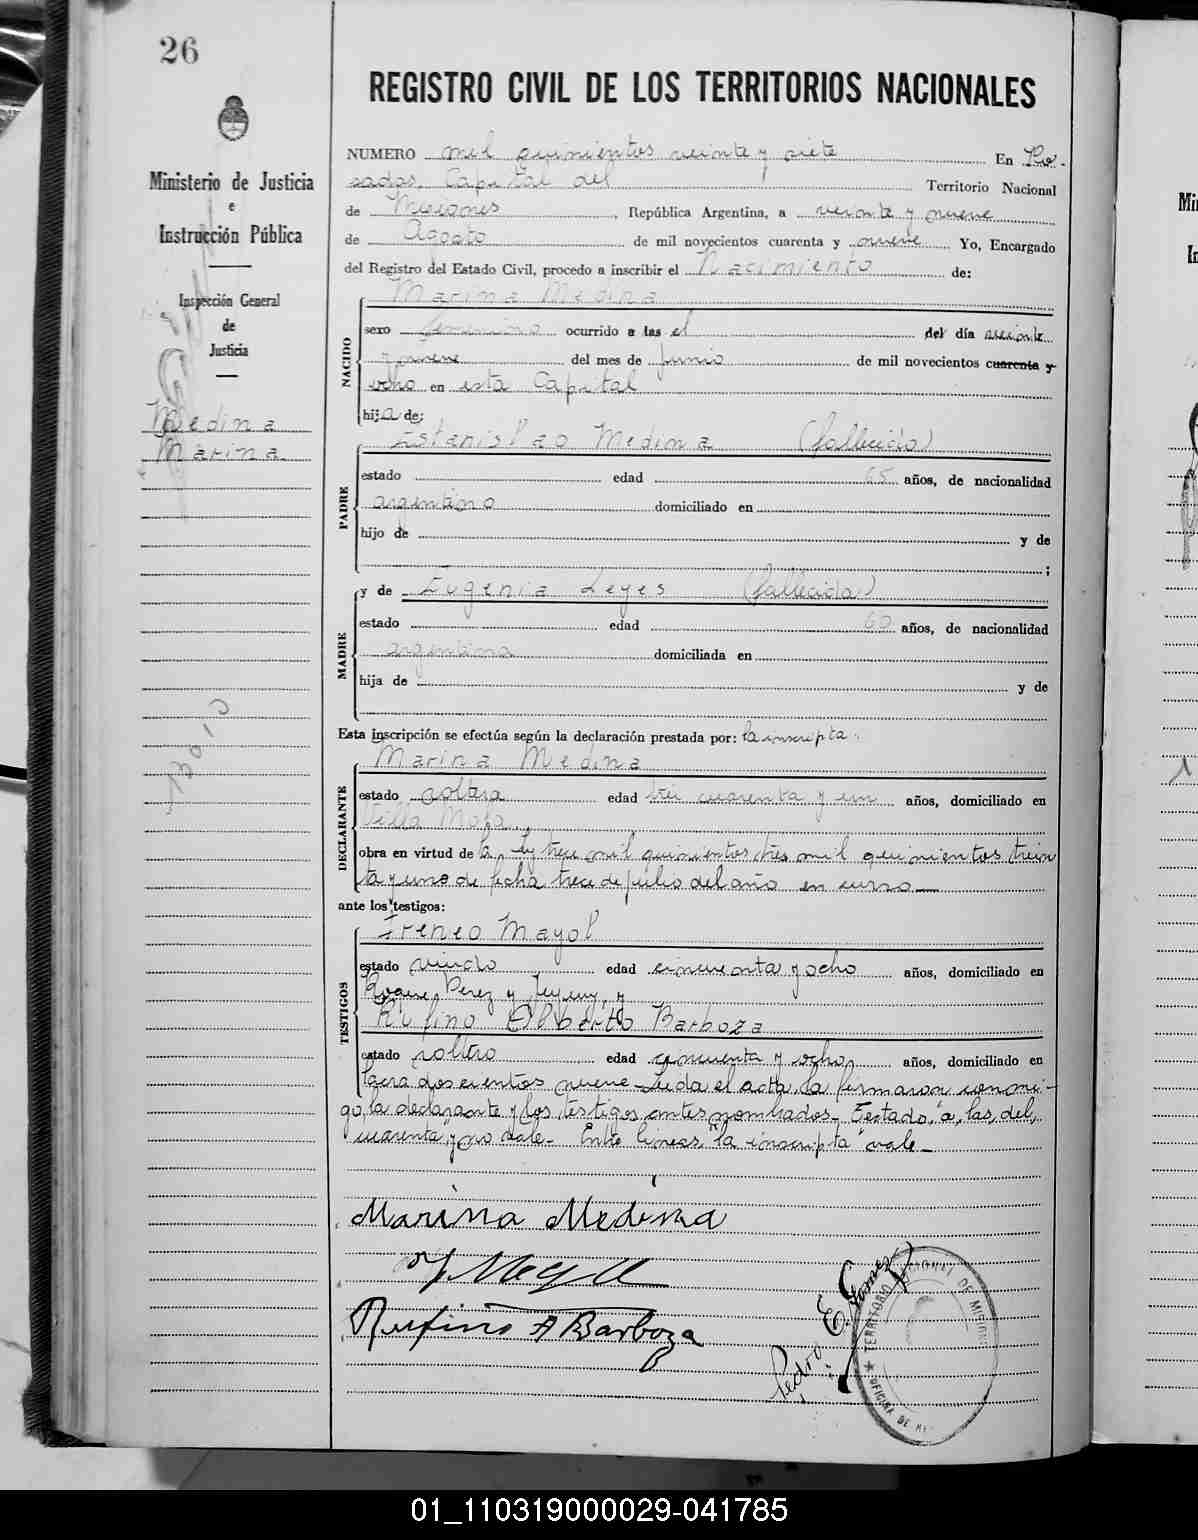 26
REGISTRO CIVIL DE LOS TERRITORIOS NACIONALES
Ministerio de Justicia
e
Instrucción Pública
Inspección General
de
Justicia
Medina
Marina
NUMERO mil quinientos veinte y siete En Po-
sadas, Capital del Territorio Nacional
de Misiones, República Argentina, a veinte y nueve
de Agosto de mil novecientos cuarenta y nueve Yo, Encargado
del Registro del Estado Civil, procedo a inscribir el Nacimiento de:
NACIDO
Marina Medina
sexo femenino ocurrido a las el del día veinte
y nueve del mes de junio de mil novecientos cuarenta y
ocho en esta Capital
hija de:
PADRE
Estanislao Medina (fallecido)
estado edad 65 años, de nacionalidad
argentino domiciliado en
hijo de y de
;
MADRE
y de Eugenia Leyes (fallecida)
estado edad 60 años, de nacionalidad
argentina domiciliada en
hija de y de
Esta inscripción se efectúa según la declaración prestada por: la inscripta.
DECLARANTE
Marina Medina
estado soltera edad cuarenta y un años, domiciliado en
Villa Mota
obra en virtud de la ley trece mil quinientos tres mil quinientos trein
ta y uno de fecha trece de julio del año en curso
ante los testigos:
TESTIGOS
Ireneo Mayol
estado viudo edad cincuenta y ocho años, domiciliado en
Roque Perez y Jujuy, y
Rufino Alberto Barboza
estado soltero edad cincuenta y ocho años, domiciliado en
doscientos nueve - Leida el acta, la firmaron conmi-
go, la declarante y los testigos antes nombrados - Testado, "a, las, del,
cuarenta, y" no vale - Entre lineas, "la inscripta" vale
Marina Medina
Rufino A Barboza
Pedro E. Gomez
★ TERRITORIO NACIONAL DE MISIONES
OFICINA DE
01_110319000029-041785